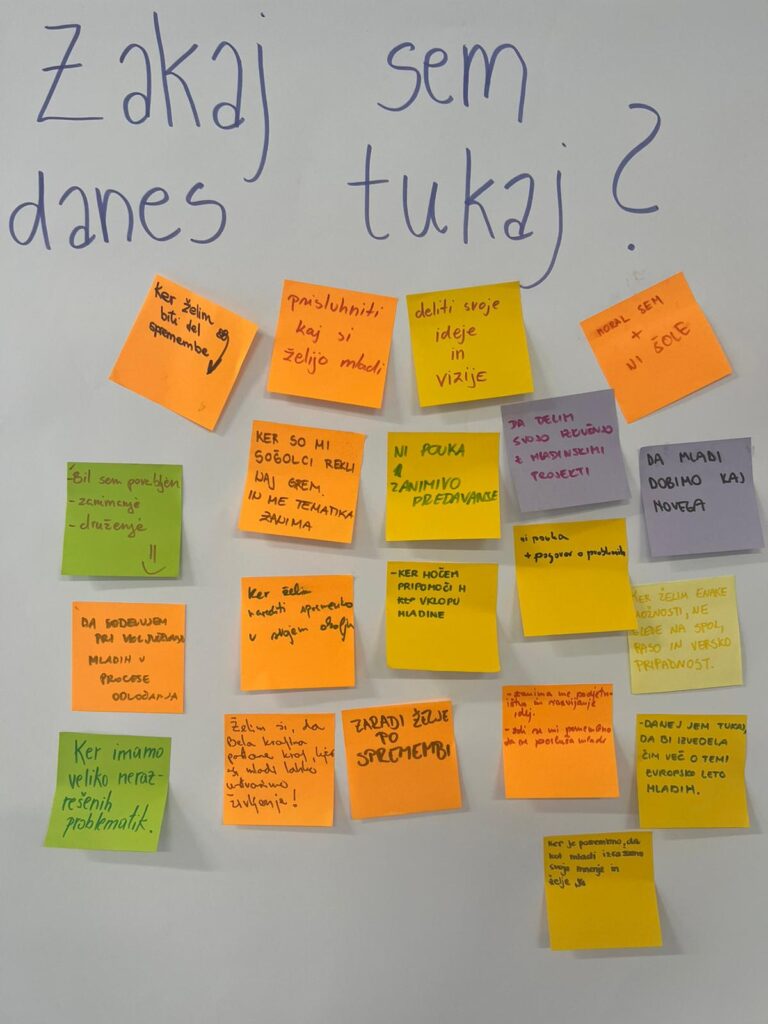 Zakaj sem
danes tukaj?
Ker želim
biti del
spremembe
prisluhniti
kaj si
želijo mladi
deliti svoje
ideje
in
vizije
MORAL SEM
+
NI ŠOLE
-Bil sem povabljen
- zanimanje
- druženje
KER SO MI
SOŠOLCI REKLI
NAJ GREM.
IN ME TEMATIKA
ZANIMA
NI POUKA
ZANIMIVO
PREDAVANJE
DA DELIM
SVOJO IZKUŠNJO
Z MLADINSKIMI
PROJEKTI
DA MLADI
DOBIMO KAJ
NOVEGA
ni pouka
+ pogovor o problemih
DA SODELUJEM
PRI VKLJUČEVANJU
MLADIH V
PROCESE
ODLOČANJA
Ker želim
narediti spremembo
v svojem okolju
-KER HOČEM
PRIPOMOČI H
VKLOPU
MLADINE
KER ŽELIM ENAKE
MOŽNOSTI, NE
GLEDE NA SPOL,
RASO IN VERSKO
PRIPADNOST.
Ker imamo
veliko neraz-
rešenih
problematik.
Želim si, da
Bela krajina
postane kraj, kjer
si mladi lahko
ustvarimo
življenje!
ZARADI ŽELJE
PO
SPREMEMBI
- zanima me podjetni-
štvo in razvijanje
idej.
- zdi se mi pomembno
da se posluša mlade
-DANEJ JEM TUKAJ,
DA BI IZVEDELA
ČIM VEČ O TEMI
EVROPSKO LETO
MLADIH.
Ker je pomembno, da
kot mladi izrazimo
svoje mnenje in
želje